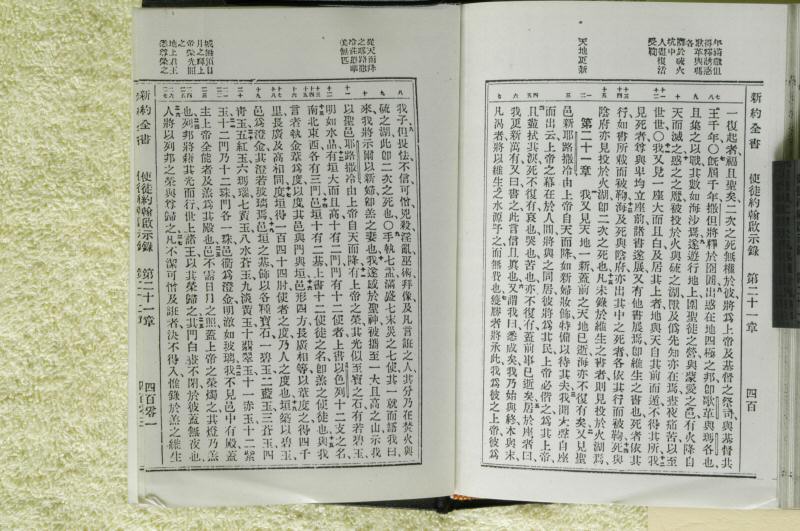 新約全書　使徒約翰啟示錄　第二十一章　四百
年滿撒但
得釋誘惑
歌革與瑪
各
投於硫火
坑中
人盡復活
受鞫
天地更新
一復起者、福且聖矣、二次之死無權於彼、將為上帝及基督之祭司、與基督北
王千年、〇既屆千年、撒但將釋於囹圄、出惑在地四極之邦、卽歌革與瑪各也、
且集之以戰、其數如海沙焉、遂遊行地上、圍聖徒之營與蒙愛之邑、有火降自
天而滅之、惑之之魔被投於火與硫之湖、獸及偽先知亦在焉、晝夜痛苦、以至
世世、〇我又見一座、大而且白、及居其上者、地與天自其前而遁、不得其所、我
見死者尊與卑均立座前、諸書遂展、又有他書展焉、卽維生之書也、死者依其
行、如書所載而被鞫、海及死與陰府、亦出其中之死者、各依其行而被鞫、死與
陰府亦見投於火湖、卽二次之死也、凡未錄於維生之書者、則見投於火湖焉、
第二十一章　我又見天地一新、蓋前之天地已逝、海亦不復有矣、又見聖
邑新耶路撒冷、由上帝自天而降、如新婦妝飾特備以待其夫、我聞大聲自座
而出云、上帝之幕在於人間、將與之同居、彼將為其民、上帝必偕之、為其上帝、
且盡拭其淚、死不復有、哀也哭也苦也、亦不復有、蓋前事已逝矣、居於座者曰、
我更新萬有、又曰、書之、此言信且真也、又謂我曰、悉成矣、我乃始與終、本與末、
凡渴者、將以維生之水源予之而無費也、獲勝者將承此、我為彼之上帝、彼為
新約全書　使徒約翰啟示錄　第二十一章　四百零一
從天而降
之耶路撒
冷莊麗華
美無匹
城無須日
月之輝上
帝榮光照
之
地上君王
悉尊榮之
我子、但畏怯不信可憎兇殺淫亂巫術拜像、及凡言誑之人、其分乃在焚火與
硫之湖、此卽二次之死也、〇手執七盂滿盛七末災之七使、其一就而語我曰、
來、我將示爾以新婦、卽羔之妻也、我遂感於聖神、被攜至一大且高之山、示我
以聖邑耶路撒冷、由上帝自天而降、有上帝之榮、其光似至寶之石、有若碧玉、
明如水晶、有垣大而且高、十有二門、門有十二使者、上書以色列十二支之名、
南北東西各有三門、邑垣十有二基、上書十二使徒之名、卽羔之使徒也、與我
言者執金葦為度、以度其邑與門與垣、邑形四方、長廣相等、以葦度之、得四千
里、長廣及高相同、度垣得一百四十四肘、使者之度乃人之度也、垣築以碧玉、
邑為澄金、其澄若玻璃焉、邑垣之基、飾以各種寶石、一碧玉、二藍玉、三蒼玉、四
青玉、五紅玉、六瑪瑙、七黃玉、八水蒼玉、九淡黃玉、十翡翠玉、十一赤玉、十二紫
玉、十二門乃十二珠、門各一珠、邑衢為澄金、明澈如玻璃、我不見邑中有殿、蓋
主上帝全能者及羔為其殿也、邑不需日月之照、蓋上帝之榮燭之、其燈乃羔
也、列邦將藉其光而行、世上諸王以其榮歸之、其門白晝不閉、於彼蓋無夜也、
人將以列邦之榮與尊歸之、凡不潔可憎及誑者、決不得入、惟錄於羔之維生